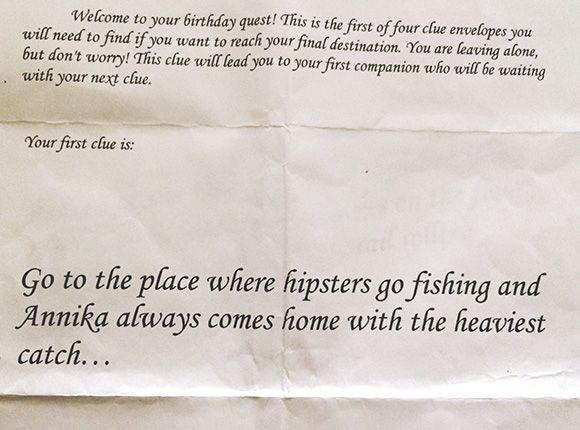 Welcome to your birthday quest! This is the first of four clue envelopes you
will need to find if you want to reach your final destination. You are leaving alone,
but don't worry! This clue will lead you to your first companion who will be waiting
with your next clue.
Your first clue is:
Go to the place where hipsters go fishing and
Annika always comes home with the heaviest
catch...